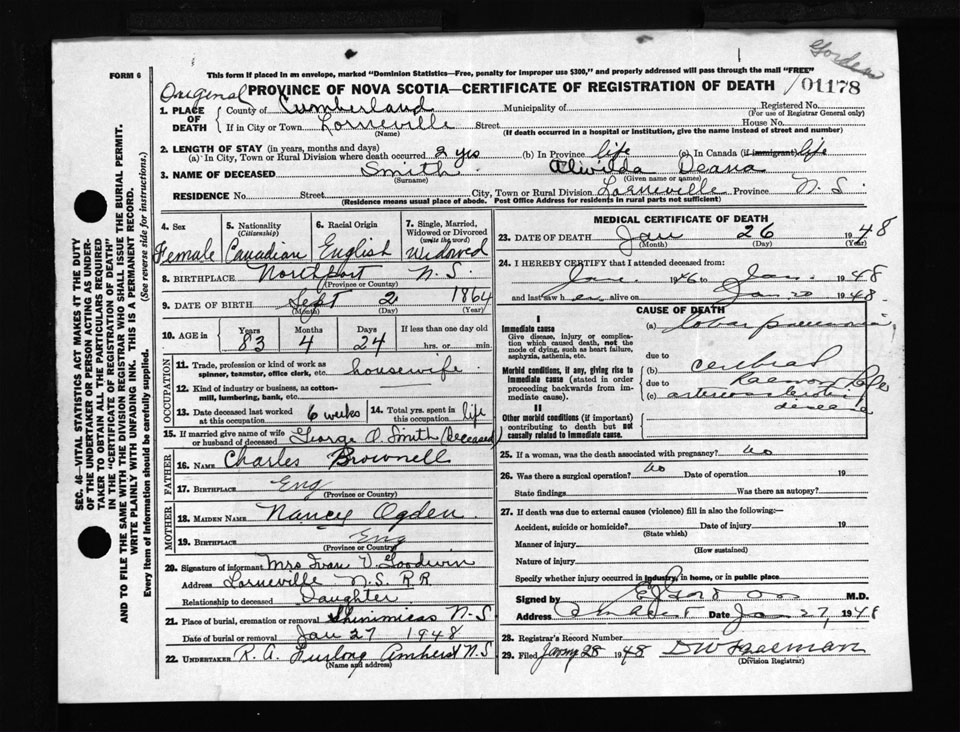 Gordon
FORM 6
This form if placed in an envelope, marked "Dominion Statistics—Free, penalty for improper use $300," and properly addressed will pass through the mail "FREE"
Original
PROVINCE OF NOVA SCOTIA—CERTIFICATE OF REGISTRATION OF DEATH
01178
1. PLACE OF DEATH { County of Cumberland Municipality of Registered No.
(For use of Registrar General only)
If in City or Town Lorneville Street House No.
(Name) (If death occurred in a hospital or institution, give the name instead of street and number)
2. LENGTH OF STAY (in years, months and days)
(a) In City, Town or Rural Division where death occurred 2 yrs (b) In Province life (c) In Canada (if immigrant) life
3. NAME OF DECEASED Smith Alwilda Deana
(Surname) (Given name or names)
RESIDENCE No. Street City, Town or Rural Division Lorneville Province N.S.
(Residence means usual place of abode. Post Office Address for residents in rural parts not sufficient)
4. Sex
Female
5. Nationality
(Citizenship)
Canadian
6. Racial Origin
English
7. Single, Married, Widowed or Divorced
(write the word)
Widowed
8. BIRTHPLACE Northport N.S.
(Province or Country)
9. DATE OF BIRTH Sept 2 1864
(Month) (Day) (Year)
10. AGE in Years Months Days If less than one day old
83 4 24 hrs. or min.
OCCUPATION
11. Trade, profession or kind of work as
spinner, teamster, office clerk, etc. housewife
12. Kind of industry or business, as cotton-
mill, lumbering, bank, etc.
13. Date deceased last worked at this occupation 6 weeks
14. Total yrs. spent in this occupation life
15. If married give name of wife
or husband of deceased George O. Smith (Deceased)
FATHER
16. NAME Charles Brownell
17. BIRTHPLACE Eng
(Province or Country)
MOTHER
18. MAIDEN NAME Nancy Ogden
19. BIRTHPLACE Eng
(Province or Country)
20. Signature of informant Mrs Ivan V. Goodwin
Address Lorneville N.S. R.R.
Relationship to deceased Daughter
21. Place of burial, cremation or removal Shinimicas N-S
Date of burial or removal Jan 27 1948
22. UNDERTAKER R. A. Furlong Amherst N.S
(Name and address)
MEDICAL CERTIFICATE OF DEATH
23. DATE OF DEATH Jan 26 1948
(Month) (Day) (Year)
24. I HEREBY CERTIFY that I attended deceased from:
Jan. 1946 to Jan. 1948
and last saw her alive on Jan 20 1948.
CAUSE OF DEATH
I
Immediate cause
Give disease, injury or complication which caused death, not the mode of dying, such as heart failure, asphyxia, asthenia, etc.
(a) lobar pneumonia
due to
Morbid conditions, if any, giving rise to immediate cause (stated in order proceeding backwards from immediate cause).
(b) cerebral
due to
(c) disease
II
Other morbid conditions (if important) contributing to death but not causally related to immediate cause.
25. If a woman, was the death associated with pregnancy? no
26. Was there a surgical operation? no Date of operation 19
State findings Was there an autopsy?
27. If death was due to external causes (violence) fill in also the following:—
Accident, suicide or homicide? Date of injury 19
(State which)
Manner of injury
(How sustained)
Nature of injury
Specify whether injury occurred in industry, in home, or in public place
Signed by M.D.
Address Date Jan 27, 1948
28. Registrar's Record Number
29. Filed Jany 28 1948 D W Freeman
(Division Registrar)
SEC. 46—VITAL STATISTICS ACT MAKES AT THE DUTY
OF THE UNDERTAKER OR PERSON ACTING AS UNDER-
TAKER TO OBTAIN ALL THE PARTICULARS REQUIRED
IN THE "CERTIFICATE OF REGISTRATION OF DEATH"
AND TO FILE THE SAME WITH THE DIVISION REGISTRAR WHO SHALL ISSUE THE BURIAL PERMIT.
WRITE PLAINLY WITH UNFADING INK. THIS IS A PERMANENT RECORD.
Every item of information should be carefully supplied. (See reverse side for instructions.)